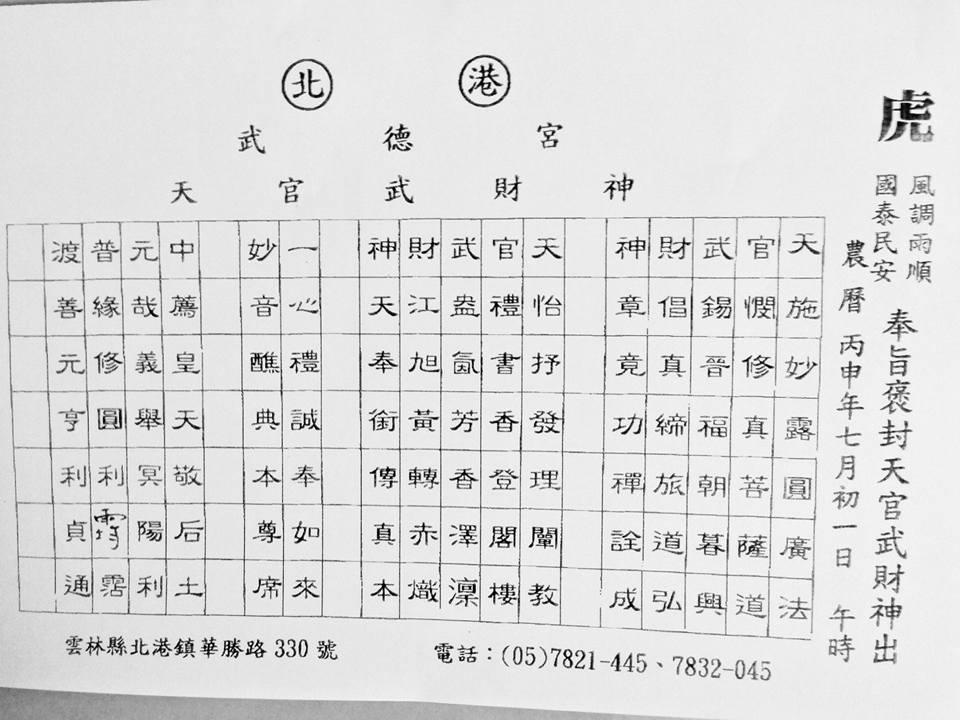 北港
武德宮
天官武財神
虎
風調雨順
國泰民安
奉旨褒封天官武財神出
農曆丙申年七月初一日 午時
天施妙露圓廣法
官憫修真菩薩道
武錫晉福朝暮興
財倡真締旅道弘
神章竟功禪詮成
天怡抒發理闡教
官禮書香登閣樓
武盎氤芳香澤凜
財江旭黃轉赤熾
神天奉銜傳真本
一心禮誠奉如來
妙音醮典本尊席
中薦皇天敬后土
元哉義舉冥陽利
普緣修圓利霑
渡善元亨利貞通
雲林縣北港鎮華勝路330號
電話：(05)7821-445、7832-045